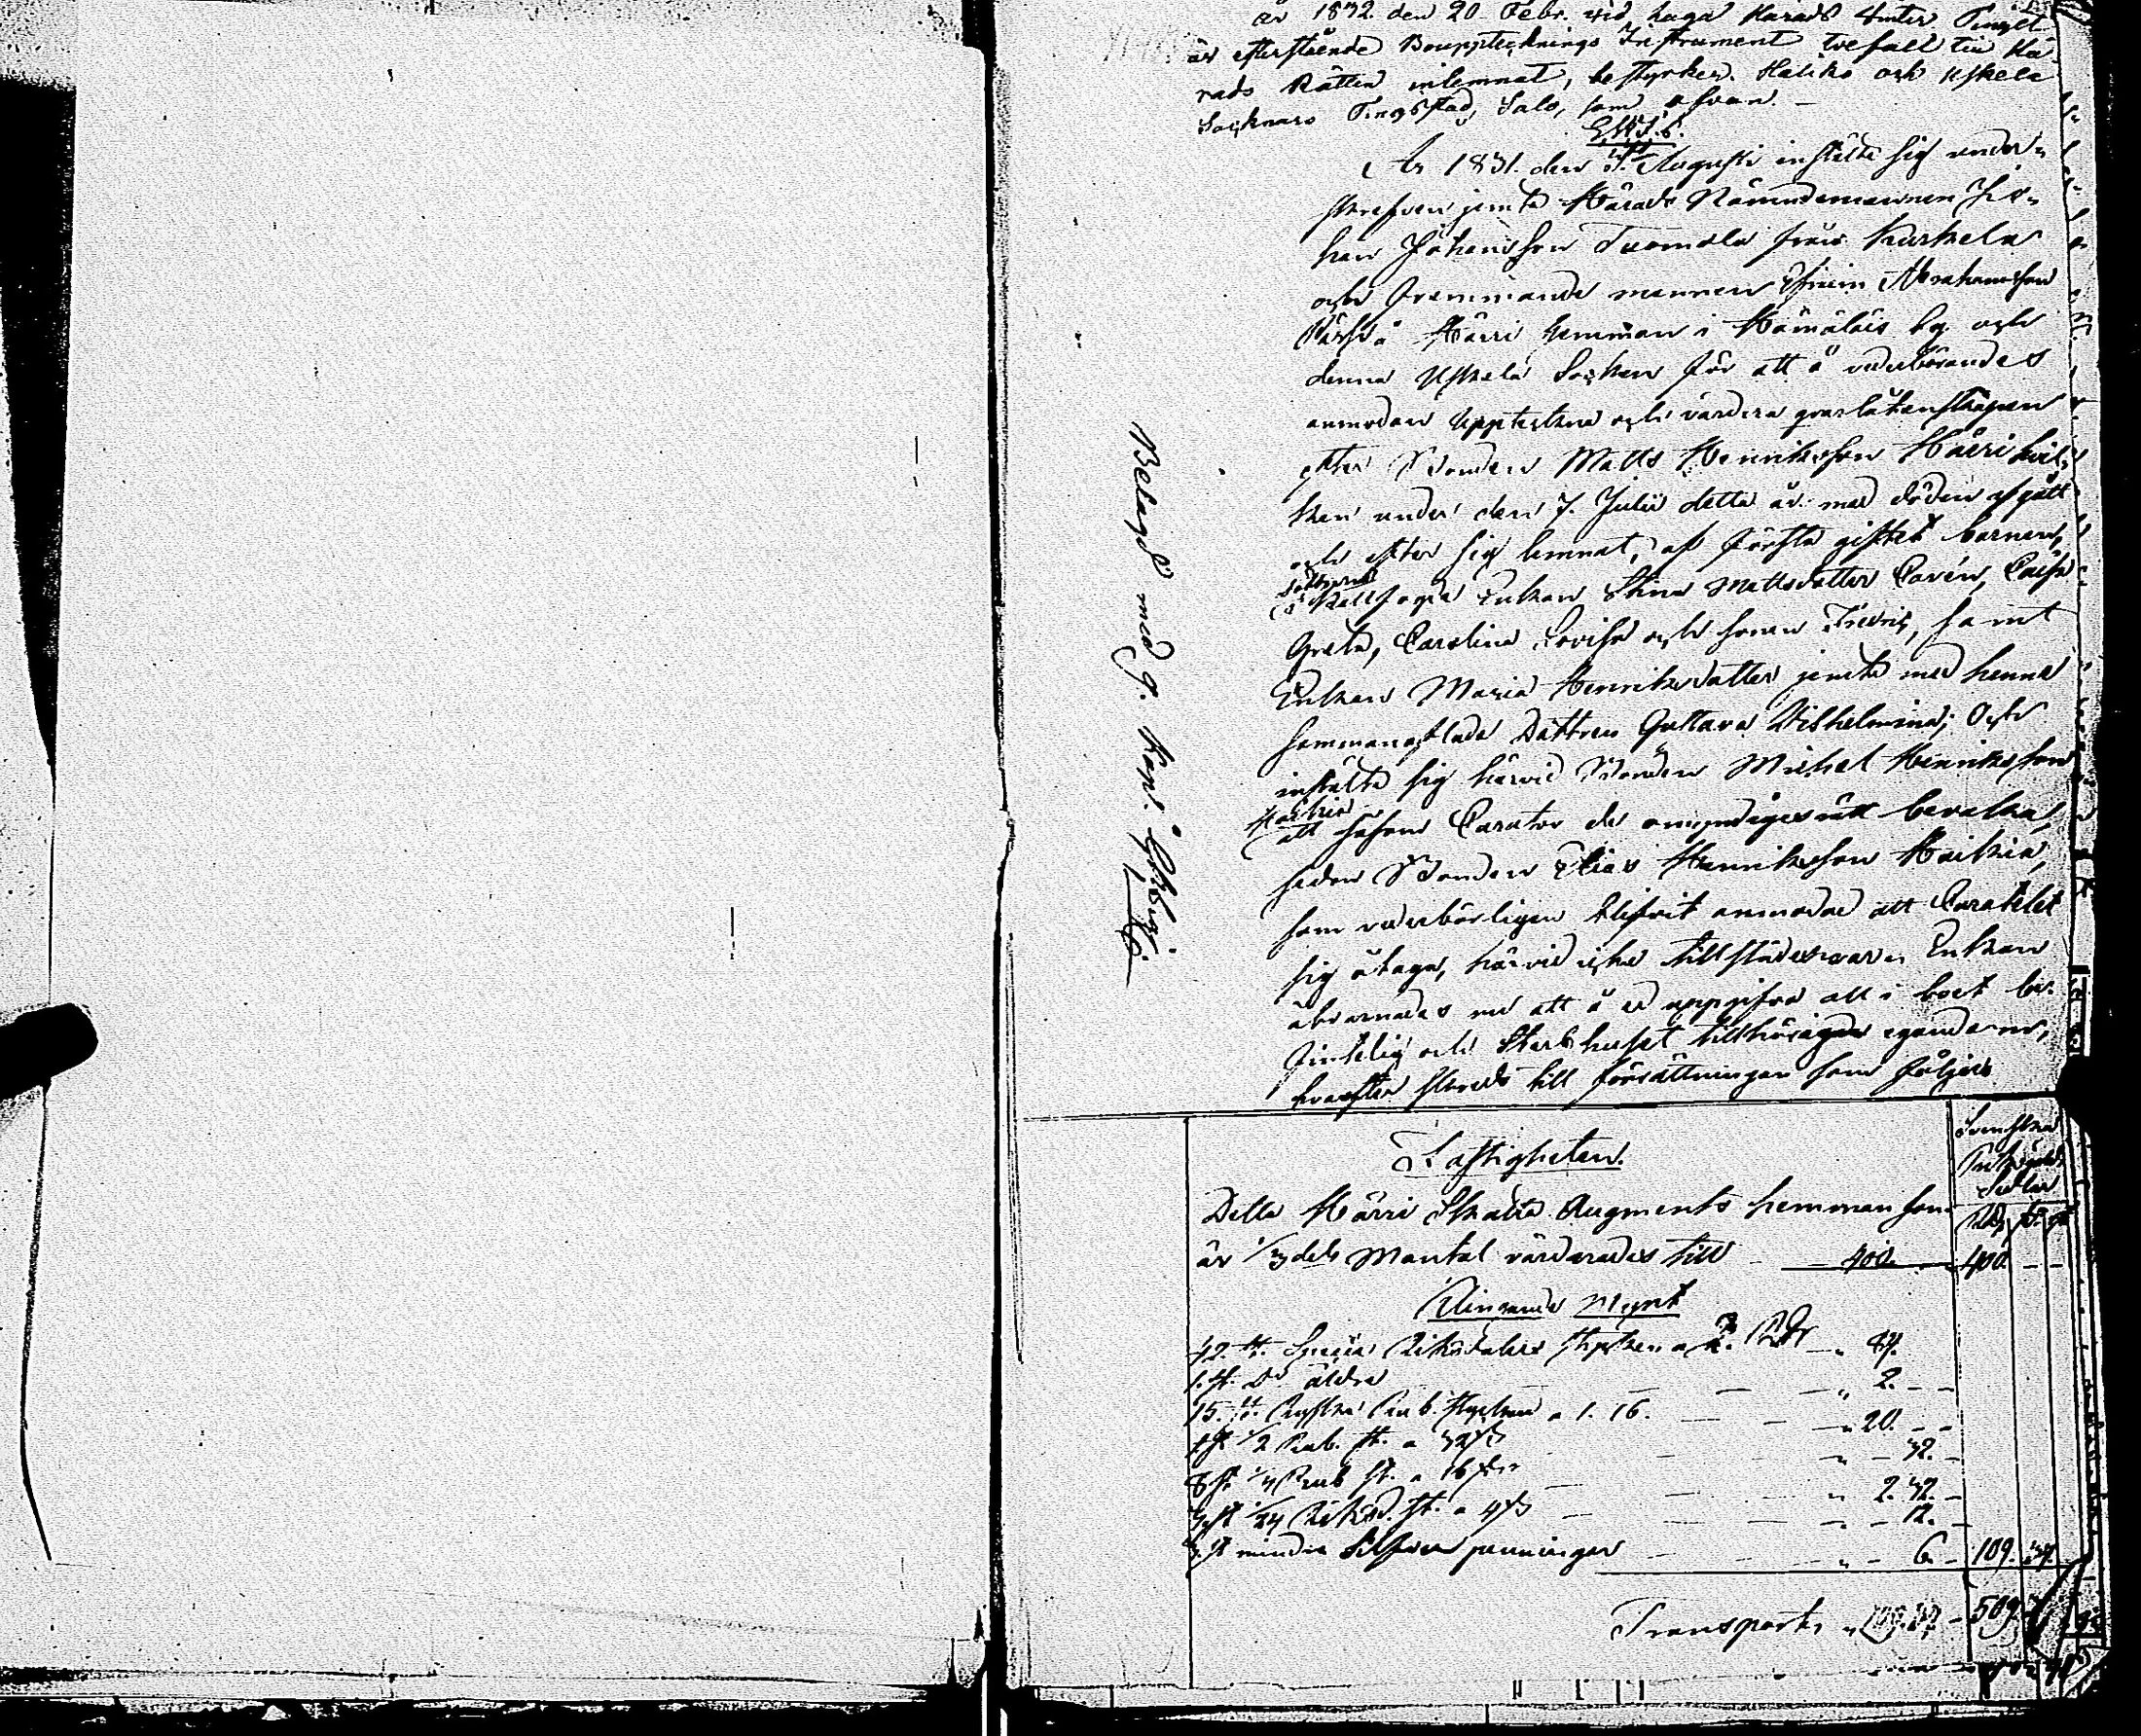 år 1832. den 20 Febr. vid laga Härads Winter Tinget
är efterstående Bouppteknings Instrument tvefalt till Hä-
rads Rätten inlemnat, bestyrker. Haliko och Uskela
Soknars Tingsstad, Salo, som ofvan. —
År 1831. den Augusti instälte sig under-
skrefven jemte Härads Nämndemannen Jo-
han Johansson Tuomola från Kurkela
och fremmande mannen Efraim Abrahamsson
å Härri hemman i Hämäläis by och
denna Uskela Socken för att å vederbörandes
anmodan uppteckna och värdera qvarlåtenskapen
efter Bonden Matts Henriksson Härri hvil-
ken under den 7. Julii detta år med döden afgått
och efter sig lemnat, af första giftet barnen,
döttrarna
Enkan Stina Mattsdotter Carén, Caisa
Greta, Carolina Lovisa och sonen Fredric, samt
Enkan Maria Henriksdotter jemte med henne
sammanaflade Dottren Gustava Wilhelmina; Och
instälte sig härvid Bonden Michel Henriksson
Haikiö
att såsom Curator de omyndigas rätt bevaka,
sedan Bonden Elias Henriksson Haikiö,
som vederbörligen blifvit anmodad att Curatelet
sig åtaga, härvid icke tillstädesvar. Enkan
åtvarnades nu att å ed uppgifva all i boet be-
fintelig och Sterbhuset tillhörig egendom,
hvarefter skreds till förrättningen som följer:
Belagd med g. Kart.
Fastigheten.
Svenska
Riksgälds
Sedlar
Detta Härri Skatte Augments hemman som
R.dr
är 1/3 dels Mantal värderades till — 400. — 400. — —
Klingande Mynt
42. st. Specie Riksdalers stycken a 2. Rdr — „ 84.
1. st. Do äldre — — — „ 2. — —
15. st. Ryska Rub. stycken a 1. 16. — — „ 20. — —
1 st 1/2 Rub. st. a 32 — „ — 32. —
8 st. 1/4 Rub st. a 16 — „ 2. 32. —
3 st 1/24 Riksd. st. a 4 — „ — 12. —
st mindre Silfver penningar — „ — 6. — 109. 34.
Transport, „ 509.